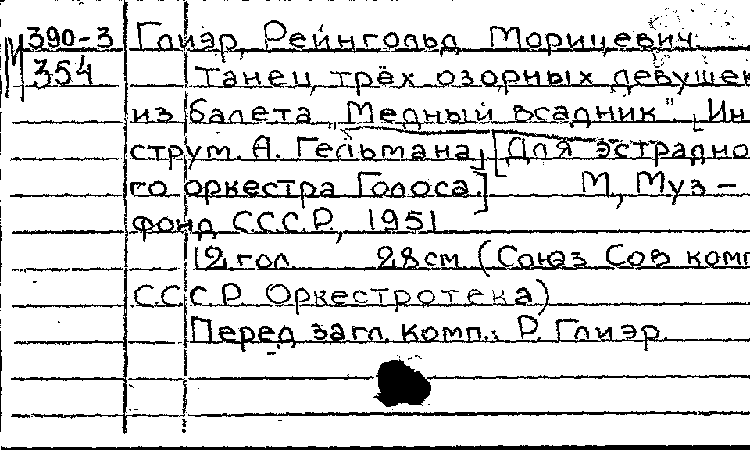 390-3 Глиэр, Рейнгольд Морицевич.
М 354 Танец трёх озорных девушек
из балета „Медный всадник". [Ин
струм. А. Гельтмана] [Для эстрадно
го оркестра. Голоса.] М., Муз-
фонд СССР, 1951
12 гол. 28 см (Союз Сов комп
СССР. Оркестротека)
Перед загл. комп.: Р. Глиэр